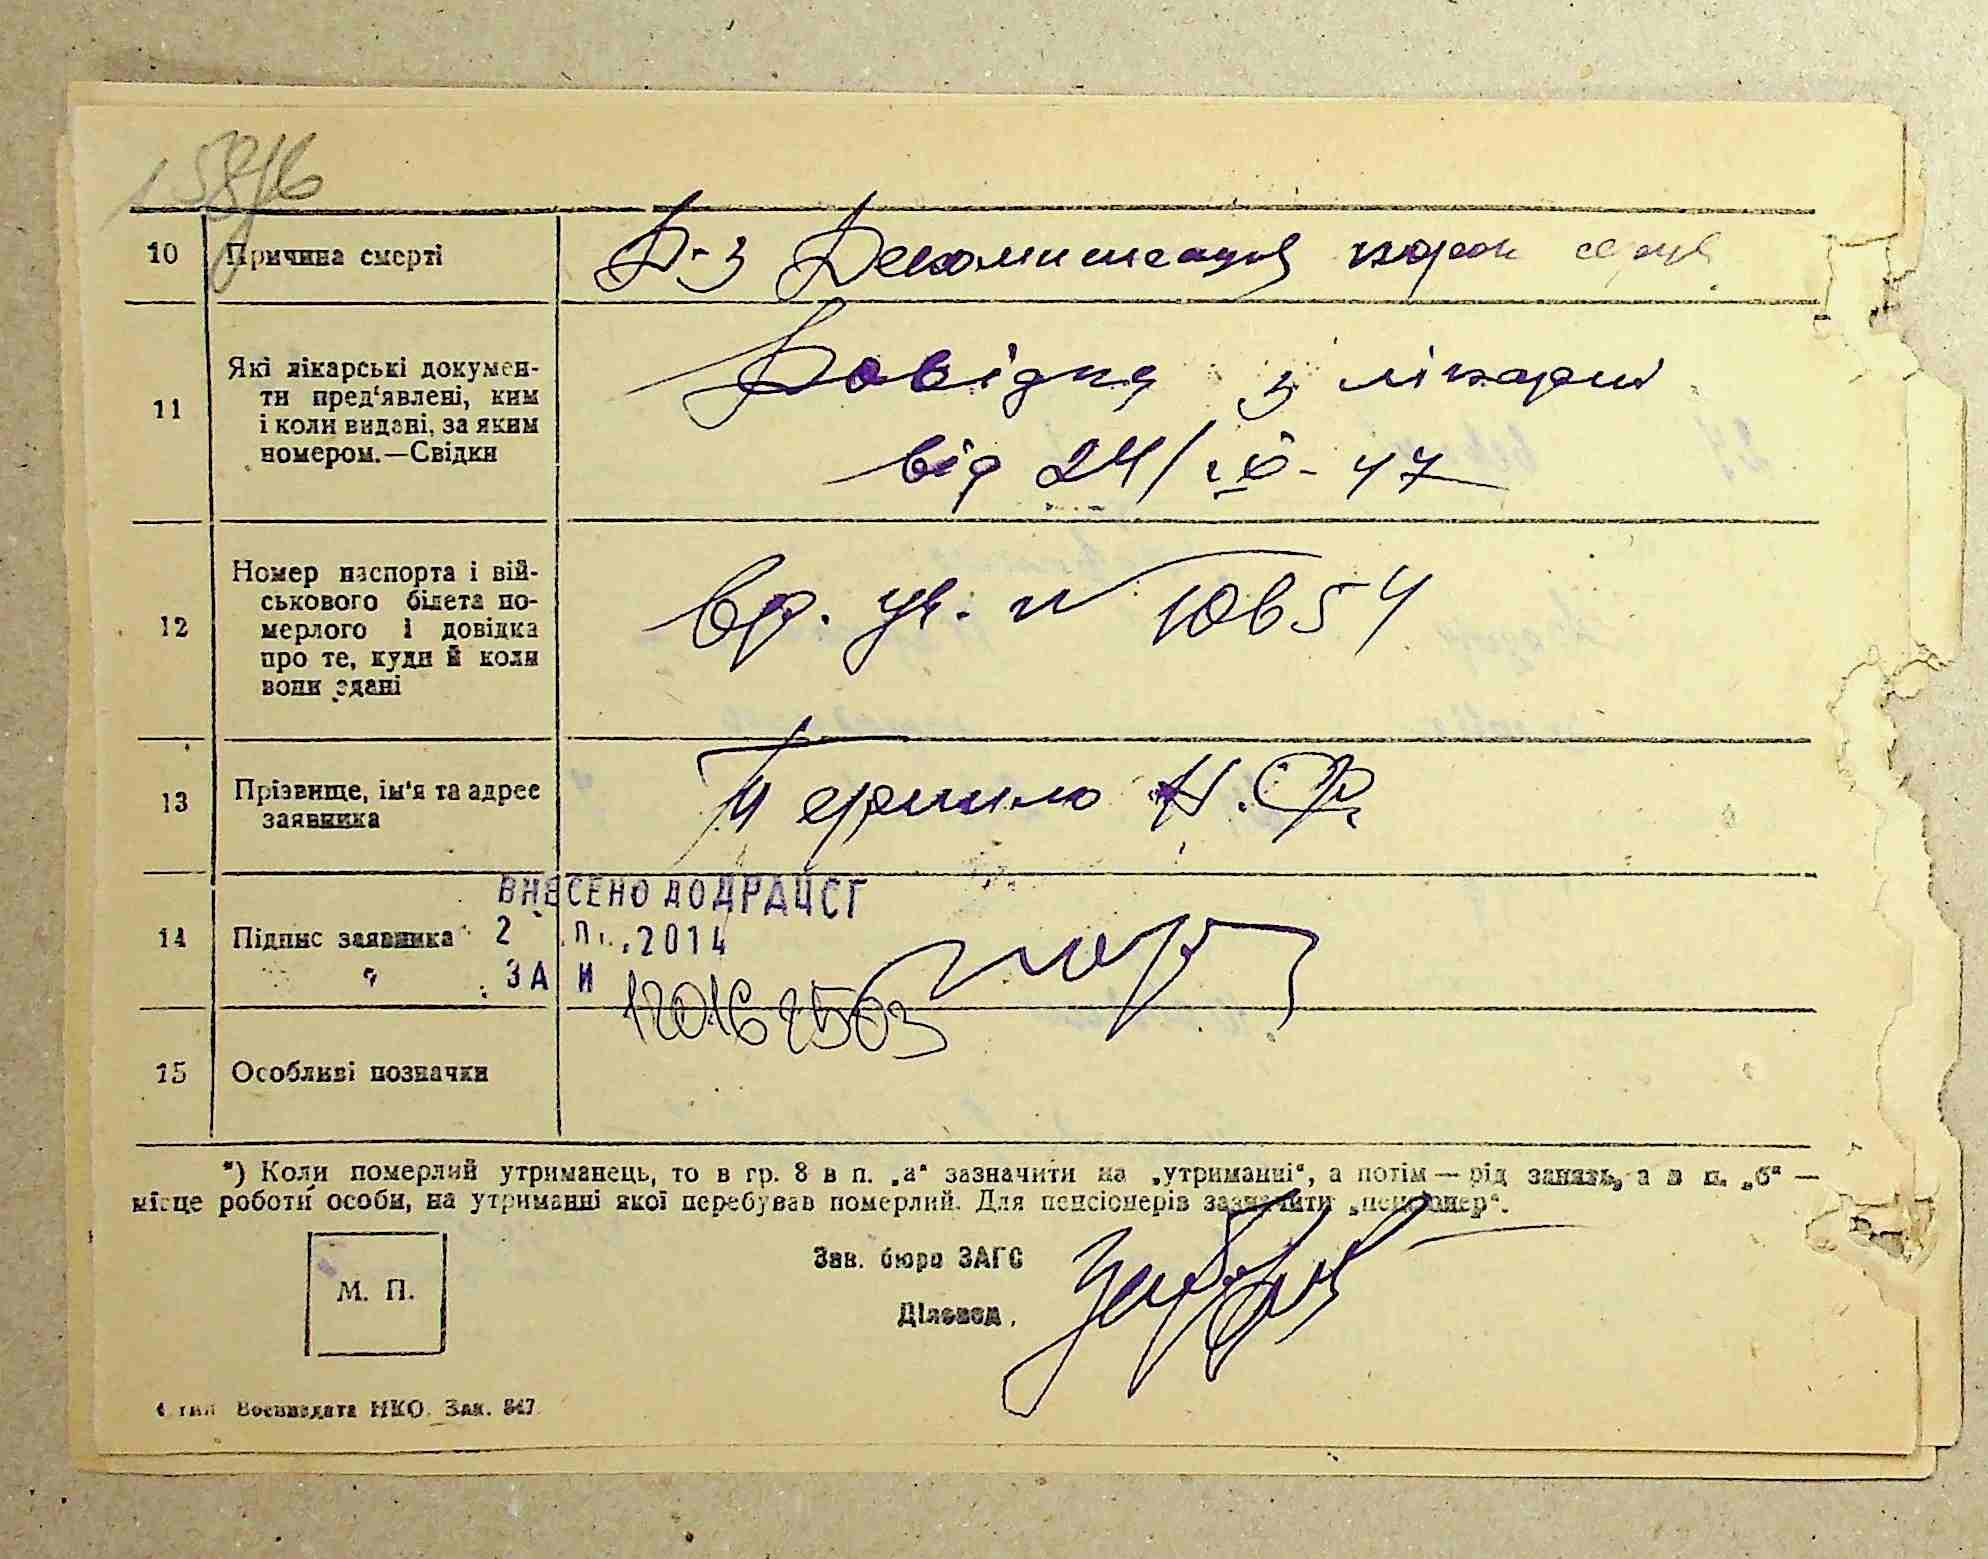 10 Причина смерті
Д-з Декомпенсация порок сердця
11 Які лікарські докумен-
ти пред'явлені, ким
і коли видані, за яким
номером.—Свідки
Довідка з лікарні
від 24/ІХ-47
12 Номер паспорта і вій-
ськового білета по-
мерлого і довідка
про те, куди й коли
вони здані
вр. уд. № 10654
13 Прізвище, ім'я та адрес
заявника
Н. Ф.
ВНЕСЕНО ДО ДРАЦСГ
14 Підпис заявника
2 2014
ЗА И
12016
15 Особливі позначки
*) Коли померлий утриманець, то в гр. 8 в п. „а" зазначити на „утриманні", а потім — рід занять, а в п. „б" —
місце роботи особи, на утриманні якої перебував померлий. Для пенсіонерів зазначити „пенсіонер".
Зав. бюро ЗАГС
М. П.
Діловод
4 тип Воениздата НКО. Зак. 847